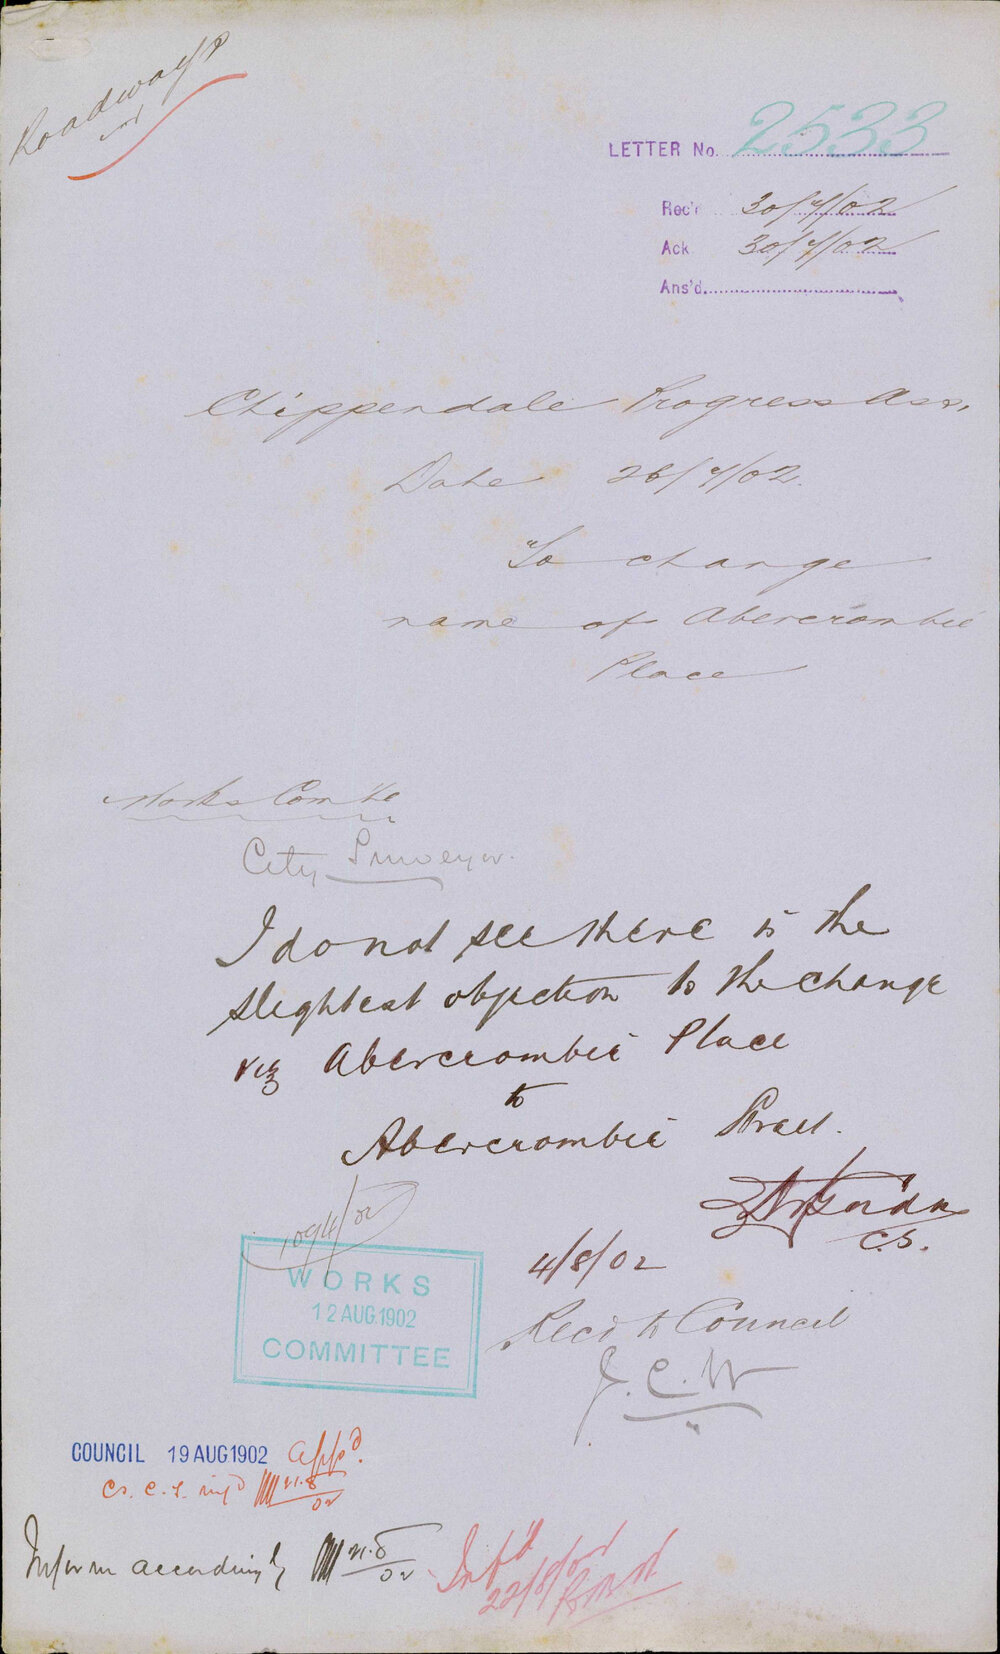 Roadways
LETTER No. 2533
Rec'd 30/7/02
Ack 30/7/02
Ans'd
Chippendale Progress Ass.
Date 26/7/02.
To change
name of Abercrombie
Place
Works Comtee
City Surveyor.
I do not see there is the
slightest objection to the change
viz Abercrombie Place
to
Abercrombie Street.
C.S.
4/8/02
1094/02
WORKS
12 AUG. 1902
COMMITTEE
Recd to Council
J. C. W
COUNCIL 19 AUG 1902 appd.
Cs. C.S. infd 21.8/02
Inform accordingly 21.8/02
Infd
22/8/02